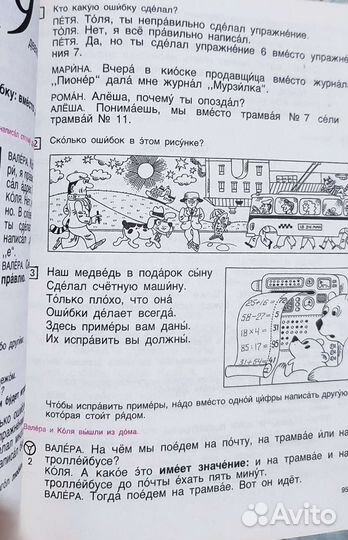 Кто какую ошибку сделал?
ПЕ́ТЯ. То́ля, ты непра́вильно сде́лал упражне́ние.
ТО́ЛЯ. Нет, я всё пра́вильно написа́л.
ПЕ́ТЯ. Да, но ты сде́лал упражне́ние 6 вме́сто упражне́-
ния 7.
МАРИ́НА. Вчера́ в кио́ске продавщи́ца вме́сто журна́ла
"Пионе́р" дала́ мне журна́л "Мурзи́лка".
РОМА́Н. Алёша, почему́ ты опозда́л?
АЛЁША. Понима́ешь, мы вме́сто трамва́я № 7 се́ли в
трамва́й № 11.
2
Ско́лько оши́бок в э́том рису́нке?
3
Наш медве́дь в пода́рок сы́ну
Сде́лал счётную маши́ну.
То́лько пло́хо, что она́
Оши́бки де́лает всегда́.
Здесь приме́ры вам даны́.
Их испра́вить вы должны́.
25+16=
58-27=
18×4=
85:17=
31+54=
Что́бы испра́вить приме́ры, на́до вме́сто одно́й ци́фры написа́ть другу́ю,
кото́рая стои́т ря́дом.
Вале́ра и Ко́ля вы́шли из до́ма.
2
ВАЛЕ́РА. На чём мы пое́дем на по́чту, на трамва́е и́ли на
тролле́йбусе?
КО́ЛЯ. А како́е э́то име́ет значе́ние: и на трамва́е и на
тролле́йбусе до по́чты е́хать пять мину́т.
ВАЛЕ́РА. Тогда́ пое́дем на трамва́е. Вот он идёт.
95
Avito